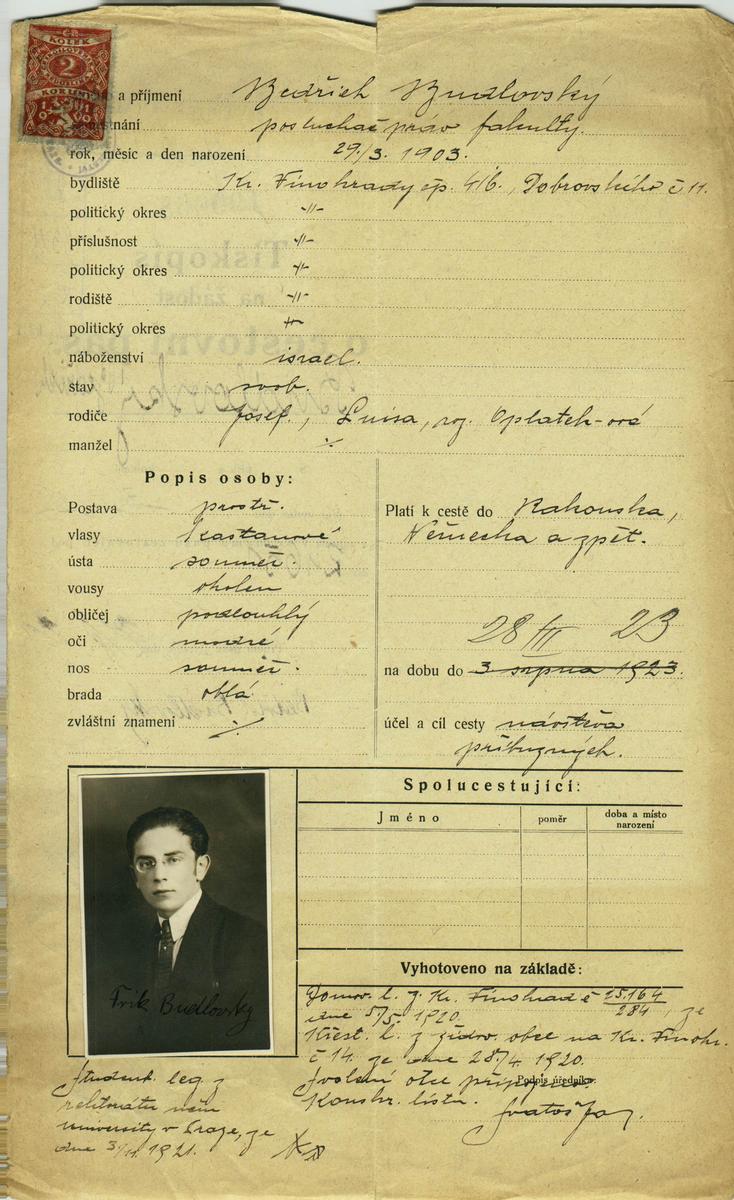 KOLEK
2
KORUNY
a příjmení Bedřich Budlovský
posluchač práv fakulty
rok, měsíc a den narození 29./3. 1903.
bydliště Kr. Vinohrady čp. 416., Dobrovského č 11.
politický okres -"-
příslušnost -"-
politický okres -"-
rodiště -"-
politický okres -"-
náboženství israel.
stav svob.
rodiče Josef., Luisa, roz. Oplatek-ová
manžel ./.
Popis osoby:
Postava prostř.
vlasy kaštanové
ústa souměr.
vousy oholen
obličej podlouhlý
oči modré
nos souměr.
brada oblá
zvláštní znamení ./.
Platí k cestě do Rakouska,
Německa a zpět.
28/III 23
na dobu do 3 srpna 1923.
účel a cíl cesty návštěva
příbuzných.
Spolucestující:
Jméno poměr doba a místo narození
Frik Budlovsky
Vyhotoveno na základě:
Domov. l. z Kr. Vinohrad č 25.164/284, ze
dne 5/5. 1920.
Křest. l. z židov. obce na Kr. Vinohr.
č 14. ze dne 28./4 1920.
Svolení otce připojeno.
Podpis úředníka:
Konskr. listu.
Student. leg. z
rektorátu něm.
university v Praze, ze
dne 3/11. 1921.